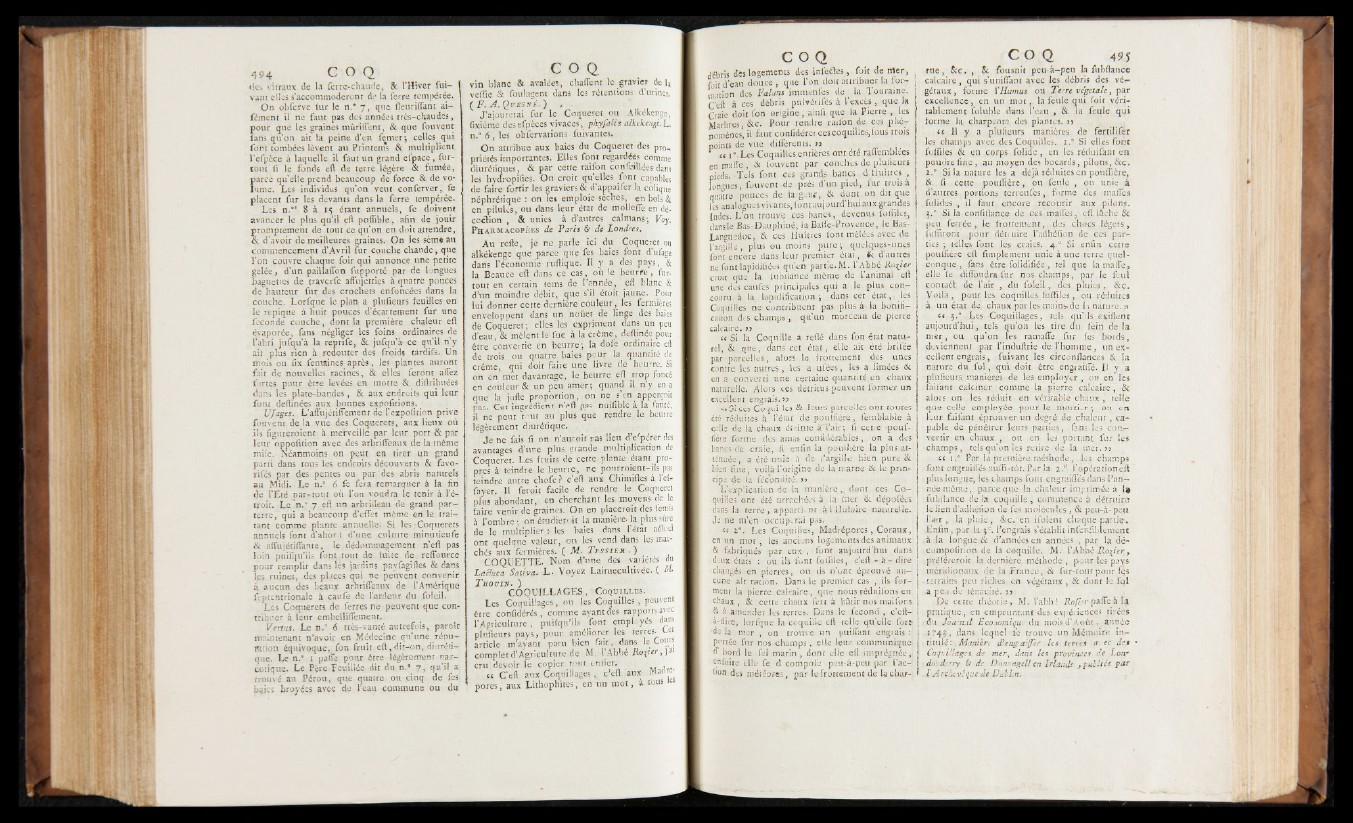 494 C O Q
des vitraux de la serre-chaude, & l'Hiver sui-
vant elles s'accommoderont de la serre tempérée.
On observe sur le n.° 7, que fleurissant ai-
sément il ne faut pas des années très-chaudes,
pour que les graines mûrissent, & que souvent
sans qu'on ait la peine d'en semer; celles qui
sont tombées lèvent au Printems & multiplient
l'espèce à laquelle il faut un grand espace, sur-
tout si le fonds est de terre légère & fumée,
parce qu'elle prend beaucoup de force & de vo-
lume. Les individus qu'on veut conserver, se
placent sur les devants dans la serre tempérée.
Les n.os 8 à 15 étant annuels, se doivent
avancer le plus qu'il est possible, afin de jouir
promptement de tout ce qu'on en doit attendre,
& d'avoir de meilleures graines. On les sème au
commencement d'Avril sur couche chaude, que
l'on couvre chaque soir qui annonce une petite
gelée, d'un paillasson supporté par de longues
baguettes de traverse assujetties à quatre pouces
de hauteur sur des crochets enfoncées dans la
couche. Lorsque le plan a plusieurs feuilles on
le repique à huit pouces d'écartement sur une
seconde couche, dont la première chaleur est
évaporée, sans négliger les soins ordinaires de
l'abri jusqu'à la reprise, & jusqu'à ce qu'il n'y
ait plus rien à redouter des froids tardifs. Un
mois ou six semaines après, les plantes auront
fait de nouvelles racines, & elles seront assez
fortes pour être levées en motte & distribuées
dans les plate-bandes, & aux endroits qui leur
sont destinées aux bonnes expositions.
Usages. L'assujétissement de l'exposition prive
souvent de la vue des Coquerets, aux lieux où
ils figureroient à merveille par leur port & par
leur opposition avec des arbrisseaux de la même
mise. Néanmoins on peut en tirer un grand
parti dans tous les endroits découverts & favo-
risés par des pentes ou par des abris naturels
au Midi. Le n.° 6 se fera remarquer à la fin
de l'Eté par-tout où l'on voudra le tenir à l'é-
troit. Le n.° 7 est un arbrisseau de grand par-
terre, qui a beaucoup d'effet même en le trai-
tant comme plante annuelle. Si les Coquerets
annuels sont d'abord d'une culture minutieuse
& assujétissante, le dédommagement n'est pas
loin puisqu'ils sont tout de suite de ressource
pour remplir dans les jardins paysagistes & dans
les ruines, des places qui ne peuvent convenir
à aucun des beaux arbrisseaux de l'Amérique
septentrionale à cause de l'ardeur du soleil.
Les Coquerets de serres ne peuvent que con-
tribuer à leur embellissement.
Vertus. Le n.° 6 très-vanté autrefois, paroît
maintenant n'avoir en Médecine qu'une répu-
tation équivoque, son fruit est, dit-on, diuréti-
que. Le n.° 1 passe pour être légèrement nar-
cotique. Le Père Feuillée dit du n.° 7, qu'il a
trouvé au Pérou, que quatre ou cinq de ses
baies broyées avec de l'eau commune ou du
C O Q
vin blanc & avalées, chassent le gravier de la
vessie & soulagent dans les rétentions d'urines.
( F. A. QUESNÉ. )
J'ajouterai sur le Coqueret ou Alkékenge,
sixième des espèces vivaces, physalis alkekengi. L.
n.° 6, les observations suivantes.
On attribue aux baies du Coqueret des pro-
priétés importantes. Elles sont regardées comme
diurétiques, & par cette raison conseillées dans
les hydropisies. On croit qu'elles sont capables
de faire sortir les graviers & d'appaiser la colique
néphrétique : on les emploie sèches, en bols &
en pilules, ou dans leur état de mollesse en dé-
coction, & unies à d'autres calmans; Voy.
PHARMACOPÉES de Paris & de Londres.
Au reste, je ne parle ici du Coqueret ou
alkékenge que parce que ses baies sont d'usage
dans l'économie rustique. Il y a des pays, &
la Beauce est dans ce cas, où le beurre, sur-
tout en certain tems de l'année, est blanc &
d'un moindre débit, que s'il étoit jaune. Pour
lui donner cette dernière couleur, les fermières
enveloppent dans un nouet de linge des baies
de Coqueret; elles les expriment dans un peu
d'eau, & mêlent le suc à la crême, destinée pour
être convertie en beurre; la dose ordinaire est
de trois ou quatre baies pour la quantité de
crême, qui doit faire une livre de beurre. Si
on en met davantage, le beurre est trop foncé
en couleur & un peu amer; quand il n'y en a
que la juste proportion, on ne s'en apperçoit
pas. Cet ingrédient n'est pas nuisible à la santé,
il ne peut tout au plus que rendre le beurre
légèrement diurétique.
Je ne sais si on n'auroit pas lieu d'espérer des
avantages d'une plus grande multiplication de
Coqueret. Les fruits de cette plante étant pro-
pres à teindre le beurre, ne pourroient-ils pas
teindre autre chose? c'est aux Chimistes à l'es-
sayer. Il seroit facile de rendre le Coqueret
plus abondant, en cherchant les moyens de le
faire venir de graines. On en placeroit des semis
à l'ombre; on étudieroit la manière la plus sûre
de le multiplier : les baies dans l'état actuel
ont quelque valeur, on les vend dans les mar-
chés aux fermières. ( M. TESSIER. )
COQUETTE. Nom d'une des variétés du
Lactuca Sativa. L. Voyez Laitue cultivée. ( M.
THOUIN. )
COQUILLAGES, COQUILLES.
Les Coquillages, ou les Coquilles, peuvent
être considérés, comme ayant des rapports avec
l'Agriculture, puisqu'ils sont employés dans
plusieurs pays, pour améliorer les terres. Cet
article m'ayant paru bien fait, dans le Cours
complet d'Agriculture de M. l'Abbé Rozier, j'ai
cru devoir le copier tout entier.
« C'est aux Coquillages, c'est aux Madré-
pores, aux Lithophites, en un mot, à tous les
C O Q
débris des logements des insectes, soit de mer,
soit d'eau douce, que l'on doit attribuer la for-
mation des Faluns immenses de la Touraine.
C'est à ces débris pulvérisés à l'excès, que la
Craie doit son origine, ainsi que la Pierre, les
Marbres, &c. Pour rendre raison de ces phé-
nomènes, il faut considérer ces coquilles, sous trois
points de vue différens. »
« 1°. Les Coquilles entières ont été rassemblées
en masse, & souvent par couches de plusieurs
pieds. Tels sont ces grands bancs d'Huitres,
longues, souvent de près d'un pied, sur trois à
quatre pouces de largeur, & dont on dit que
les analogues vivants, sont aujourd'hui aux grandes
Indes. L'on trouve ces bancs, devenus fossiles,
dans le Bas-Dauphiné, la Basse-Provence, le Bas-
Languedoc, & ces Huîtres sont mêlées avec de
l'argille, plus ou moins pure; quelques-unes
sont encore dans leur premier état, & d'autres
ne sont lapidifiées qu'en partie. M. l'Abbé Rozier
croit que la substance même de l'animal est
une des causes principales qui a le plus con-
couru à la lapidification; dans cet état, les
Coquilles ne contribuent pas plus à la bonifi-
cation des champs, qu'un morceau de pierre
calcaire. »
« Si la Coquille a resté dans son état natu-
rel, & que, dans cet état, elle ait été brisée
par parcelles, alors le frottement des unes
contre les autres, les a usées, les a limées &
en a converti une certaine quantité en chaux
naturelle. Alors ces detritus peuvent former un
excellent engrais. »
« Si ces Coquilles & leurs parcelles ont toutes
été réduites à l'état de poussière, semblable à
celle de la chaux éteinte à l'air; si cette pous-
sière forme des amas considérables, on a des
bancs de craie, si enfin la poussière la plus at-
ténuée, a été unie à de l'argille bien pure &
bien fine, voilà l'origine de la marne & le prin-
cipe de la fécondité. »
L'explication de la manière, dont ces Co-
quilles ont été arrachées à la mer & déposées
dans la terre, appartient à l'Histoire naturelle.
Je ne m'en occuperai pas.
« 2°. Les Coquilles, Madrépores, Coraux,
en un mot, les anciens logements des animaux
& fabriqués par eux, sont aujourd'hui dans
deux états : ou ils sont fossiles, c'est-à-dire
changés en pierres, ou ils n'ont éprouvé au-
cune altération. Dans le premier cas, ils for-
ment la pierre calcaire, que nous réduisons en
chaux, & cette chaux sert à bâtir nos maisons
& à amender les terres. Dans le second, c'est-
à-dire, lorsque la coquille est telle qu'elle sort
de la mer, on trouve un puissant engrais :
portée sur nos champs, elle leur communique
d'abord le sel marin, dont elle est imprégnée,
ensuite elle se décompose peu-à-peu par l'ac-
tion des météores, par le frottement de la char-
C O Q 495
rue, &c., & fournit peu-à-peu la substance
calcaire, qui s'unissant avec les débris des vé-
gétaux, forme l'Humus ou Terre végétale, par
excellence, en un mot, la seule qui soit véri-
tablement soluble dans l'eau, & la seule qui
forme la charpente des plantes. »
« Il y a plusieurs manières de fertiliser
les champs avec des Coquilles. 1.° Si elles sont
fossiles & en corps solide, en les réduisant en
poudre fine, au moyen des bocards, pilons, &c.
2.° Si la nature les a déjà réduites en poussière,
& si cette poussière, ou seule, ou unie à
d'autres portions terreuses, forme des masses
solides, il faut encore recourir aux pilons.
3.° Si la consistance de ces masses, est lâche &
peu serrée, le frottement, des chocs légers,
suffiront pour détruire l'adhésion de ces par-
ties; telles sont les craies. 4.° Si enfin cette
poussière est simplement unie à une terre quel-
conque, sans être solidifiée, tel que la masse,
elle se dissoudra sur nos champs, par le seul
contact de l'air, du soleil, des pluies, &c.
Voilà, pour les coquilles fossiles, ou réduites
à un état de chaux par les mains de la nature. »
« 5.° Les Coquillages, tels qu'ils existent
aujourd'hui, tels qu'on les tire du sein de la
mer, ou qu'on les ramasse sur les bords,
deviennent par l'industrie de l'homme, un ex-
cellent engrais, suivant les circonstances & la
nature du sol, qui doit être engraissé. Il y a
plusieurs manières de les employer, ou en les
faisant calciner comme la pierre calcaire, &
alors on les réduit en véritable chaux, telle
que celle employée pour le mortier; ou en
leur faisant éprouver un degré de chaleur, ca-
pable de pénétrer leurs parties, sans les con-
vertir en chaux, ou en les portant sur les
champs, tels qu'on les retire de la mer. »
« 1.° Par la première méthode, les champs
sont engraissés aussi-tôt. Par la 2.°. l'opération est
plus longue, les champs sont engraissés dans l'an-
née même, parce que la chaleur imprimée à la
substance de la coquille, commence à détruire
le lien d'adhésion de ses molécules, & peu-à-peu
l'air, la pluie, &c. en isolent chaque partie.
Enfin, par la 3°. l'engrais s'établit insensiblement
à la longue & d'années en années, par la dé-
composition de la coquille. M. l'Abbé Rozier,
préféreroit la dernière méthode, pour les pays
méridionaux de la France, & sur-tout pour les
terrains peu riches en végétaux, & dont le sol
a peu de ténacité. »
De cette théorie, M. l'abbé Rozier passe à la
pratique, en empruntant des expériences tirées
du Journal Economique du mois d'Août, année
1743, dans lequel se trouve un Mémoire in-
titulé: Manière d'engraisser les terres avec des
Coquillages de mer, dans les provinces de Lon-
donderry & de Donnegall en Irlande, publiée par
l'Archevêque de Dublin.